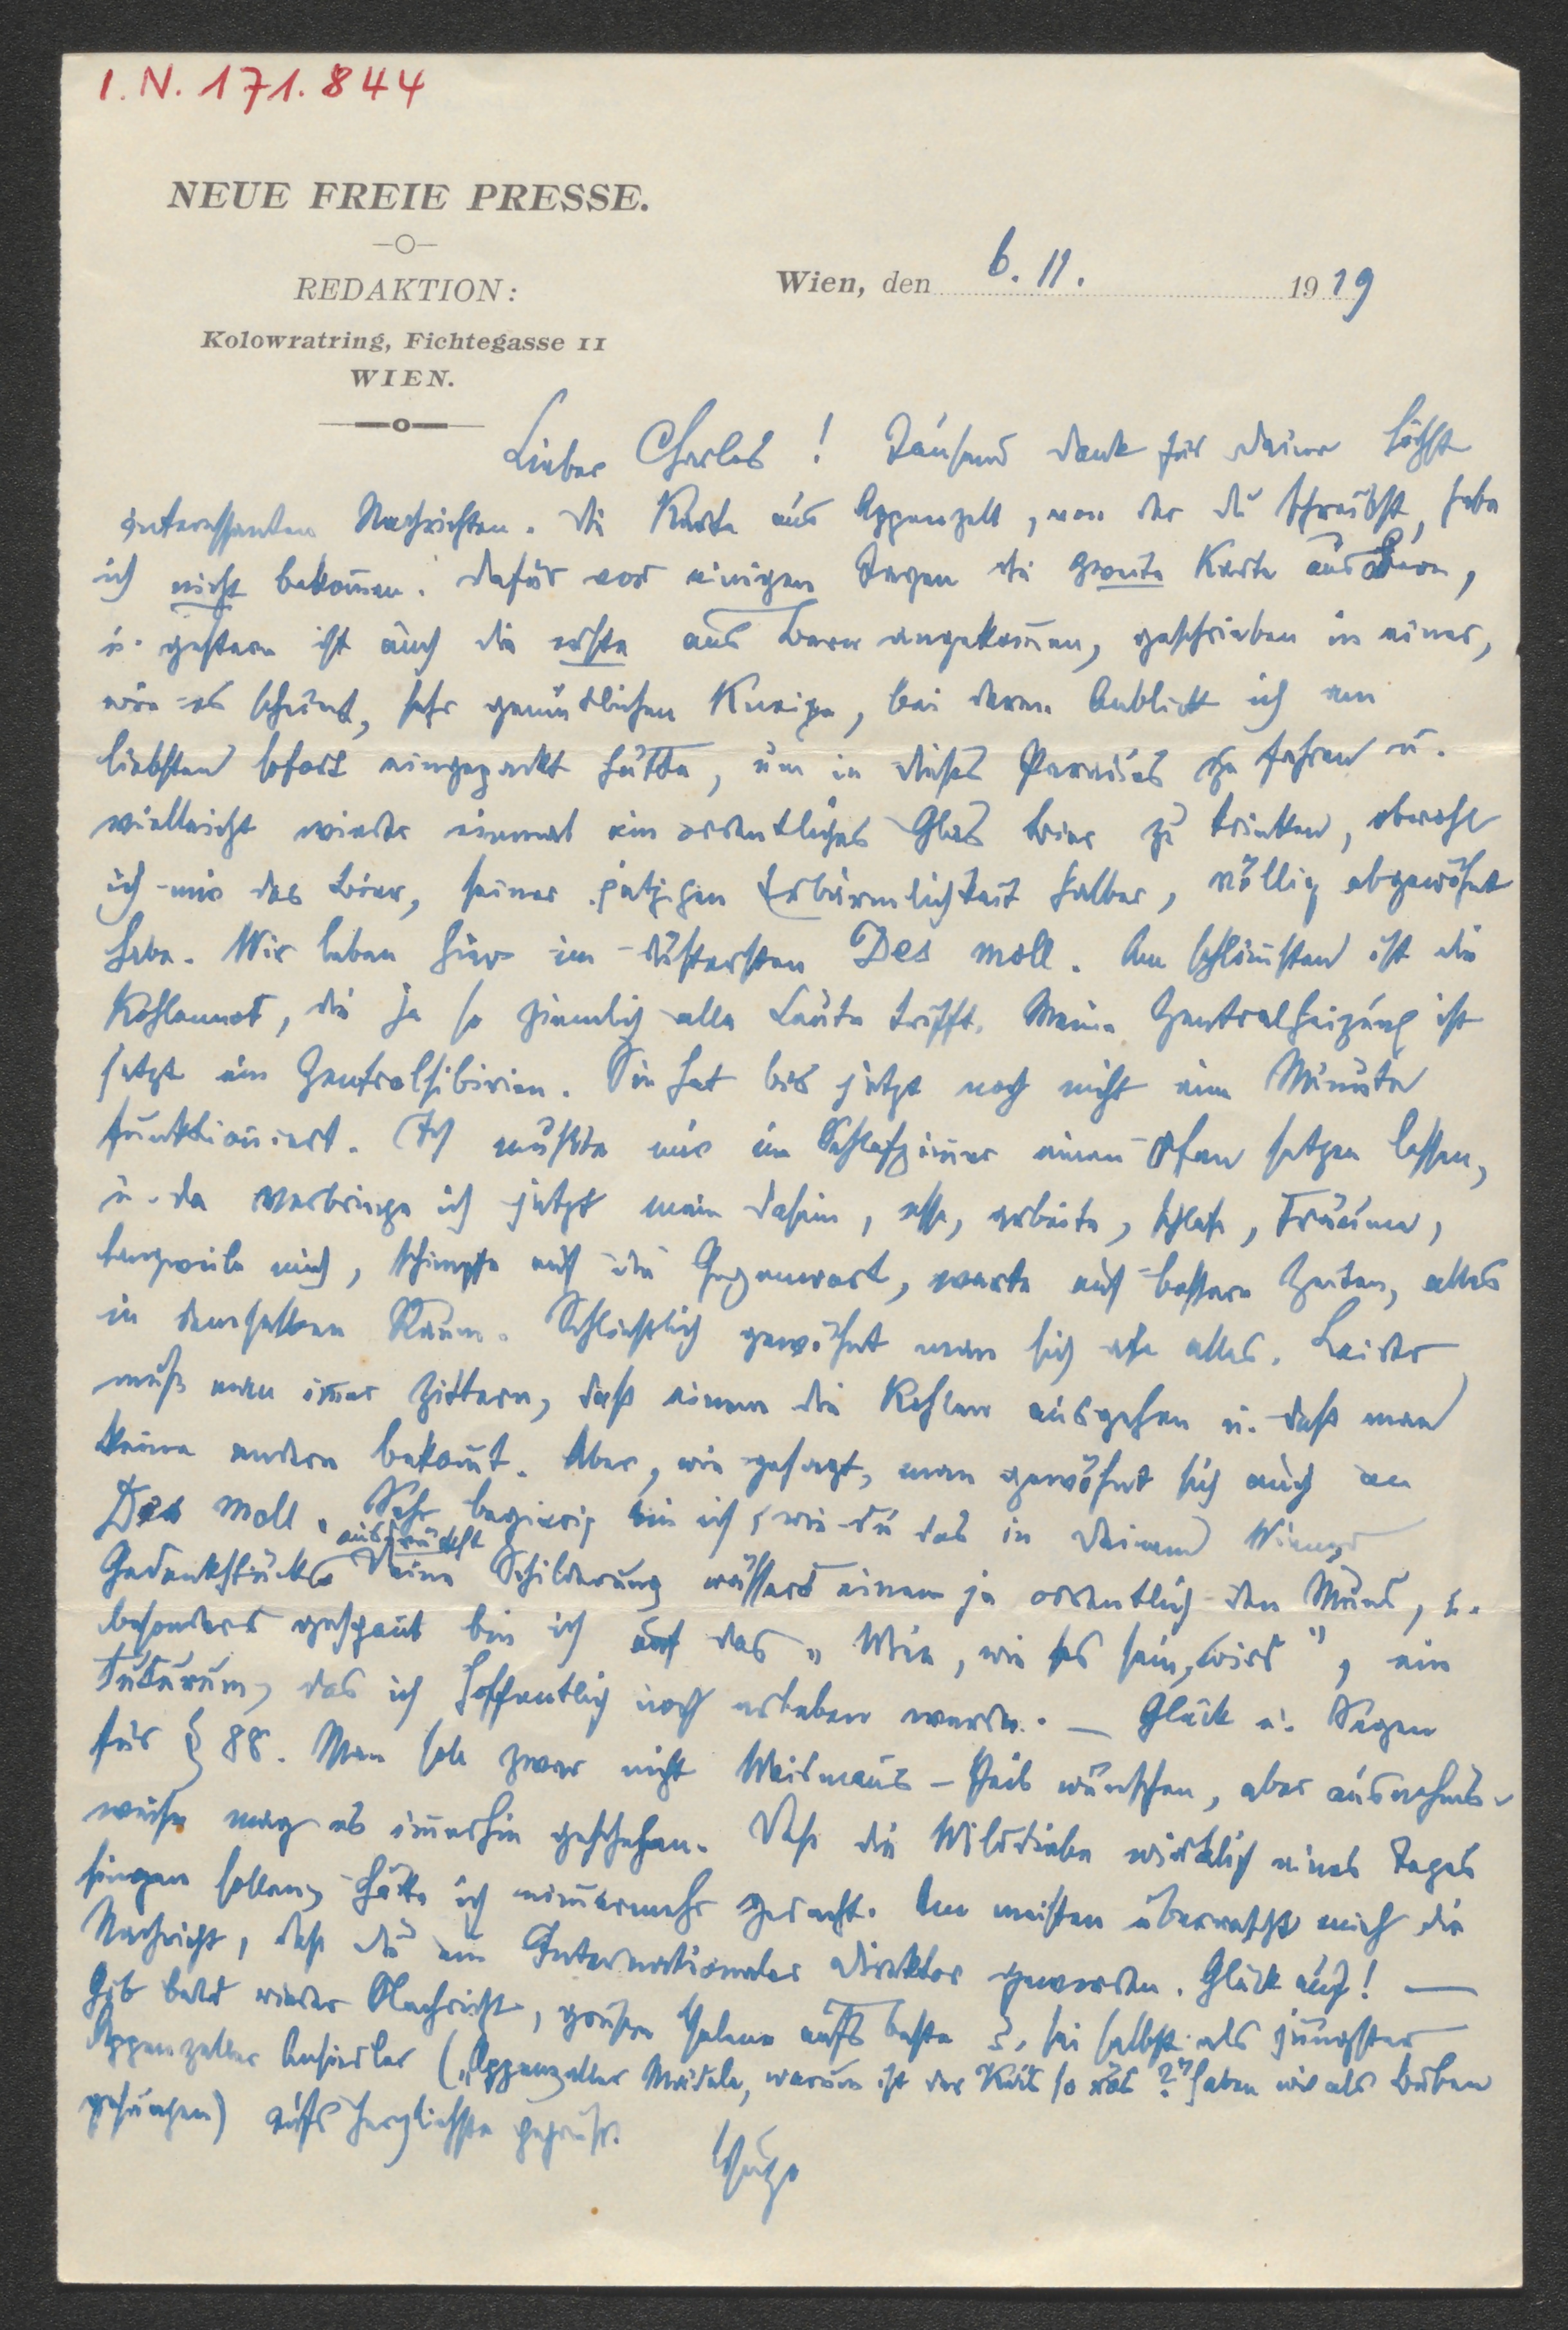 I. N. 171.844
NEUE FREIE PRESSE.
REDAKTION:
Kolowratring, Fichtegasse 11
WIEN.
Wien, den 6. 11. 1919
Lieber Charles! Tausend Dank für Deine höchst
interessanten Nachrichten. Die Karte aus Appenzell, von der Du schreibst, habe
ich nicht bekommen. Dafür vor einigen Tagen die zweite Karte aus Bern,
u. gestern ist auch die erste aus Bern angekommen, geschrieben in einer,
wie es scheint, sehr gemütlichen Kneipe, bei deren Anblick ich am
liebsten sofort eingepackt hätte, um in dieses Paradies zu fahren u.
vielleicht wieder einmal ein ordentliches Glas Bier zu trinken, obwohl
ich mir das Bier, seiner jetzigen Erbärmlichkeit halber, völlig abgewöhnt
habe. Wir leben hier im düstersten Des moll. Am schlimmsten ist die
Kohlennot, die ja so ziemlich alle Leute trifft. Meine Zentralheizung ist
jetzt ein Zentralsibirien. Sie hat bis jetzt noch nicht eine Minute
funktioniert. Ich mußte mir im Schlafzimmer einen Ofen setzen lassen,
u. da verbringe ich jetzt mein Dasein, esse, arbeite, schlafe, träume,
langweile mich, schimpfe auf die Gegenwart, warte auf bessere Zeiten, alles
in demselben Raum. Schließlich gewöhnt man sich an alles. Leider
muß man immer zittern, daß einem die Kohlen ausgehen u. daß man
keine andern bekommt. Aber, wie gesagt, man gewöhnt sich auch an
Des moll. Sehr begierig bin ich, wie Du das in Deinem Wiener
ausdrückst
Gedenkstück Deine Schilderung wässert einem ja ordentlich den Mund, u.
besonders gespannt bin ich auf das „Wien, wie es sein wird", ein
Futurum, das ich hoffentlich noch erleben werde. — Glück u. Segen
für § 88. Man soll zwar nicht Weidmanns-Heil wünschen, aber ausnahms-
weise mag es immerhin geschehen. Daß die Wilddiebe wirklich eines Tages
singen sollen, hätte ich nimmermehr gedacht. Am meisten überrascht mich die
Nachricht, daß Du ein Internationaler Direktor geworden. Glück auf! —
Gib bald wieder Nachricht, grüße Helene aufs beste u. sei selbst als jüngster
Appenzeller Ansiedler („Appenzeller Maidele, warum ist der Käs so räs?" haben wir als Buben
gesungen) aufs herzlichste gegrüßt.
Hugo